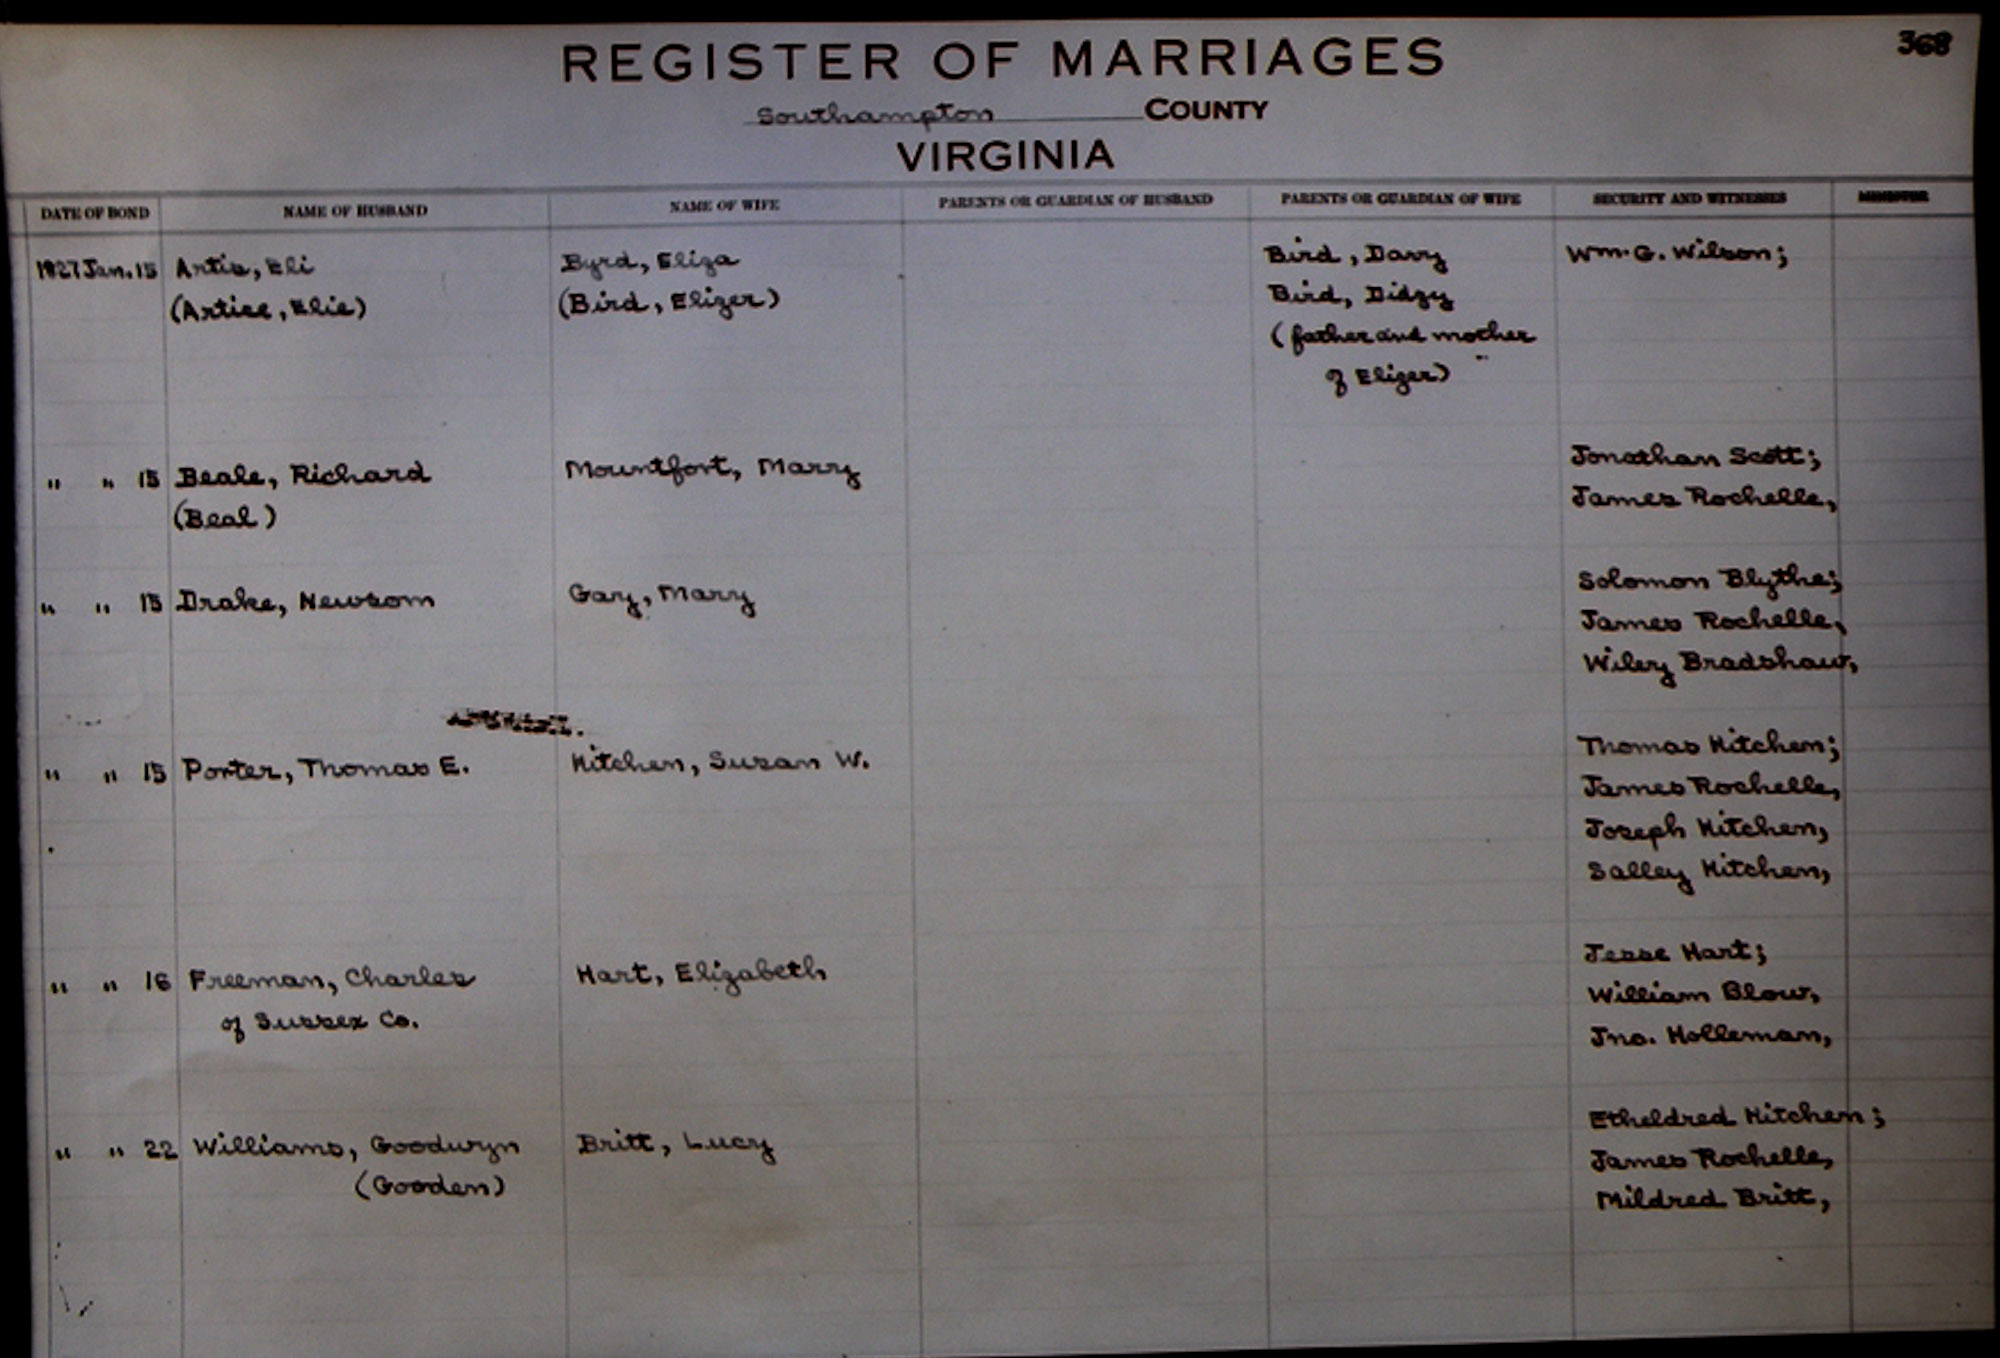 368
REGISTER OF MARRIAGES
Southampton COUNTY
VIRGINIA
DATE OF BOND NAME OF HUSBAND NAME OF WIFE PARENTS OR GUARDIAN OF HUSBAND PARENTS OR GUARDIAN OF WIFE SECURITY AND WITNESSES
1827 Jan. 15 Artis, Eli Byrd, Eliza Bird, Davy Wm. G. Wilson;
(Artice, Elie) (Bird, Elizer) Bird, Didzy
(father and mother
of Elizer)
" " 15 Beale, Richard Mountfort, Mary Jonathan Scott;
(Beal) James Rochelle,
" " 15 Drake, Newsom Gay, Mary Solomon Blythe;
James Rochelle,
Wiley Bradshaw,
" " 15 Porter, Thomas E. Kitchen, Susan W. Thomas Kitchen;
James Rochelle,
Joseph Kitchen,
Salley Kitchen,
" " 16 Freeman, Charles Hart, Elizabeth Jesse Hart;
of Sussex Co. William Blow,
Jno. Holleman,
" " 22 Williams, Goodwyn Britt, Lucy Etheldred Kitchen;
(Gooden) James Rochelle,
Mildred Britt,